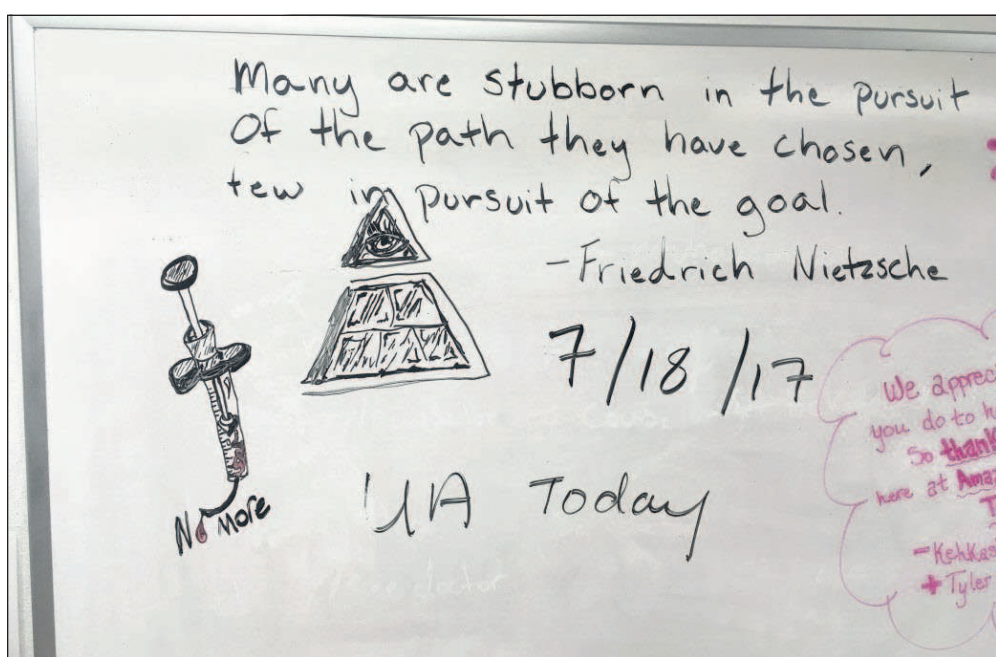 Many are stubborn in the pursuit
Of the path they have chosen,
few in pursuit of the goal.
-Friedrich Nietzsche
7/18/17
UA Today
No More
We apprec
you do to h
So thank
here at Ama
T
-KehKas
+Tyler